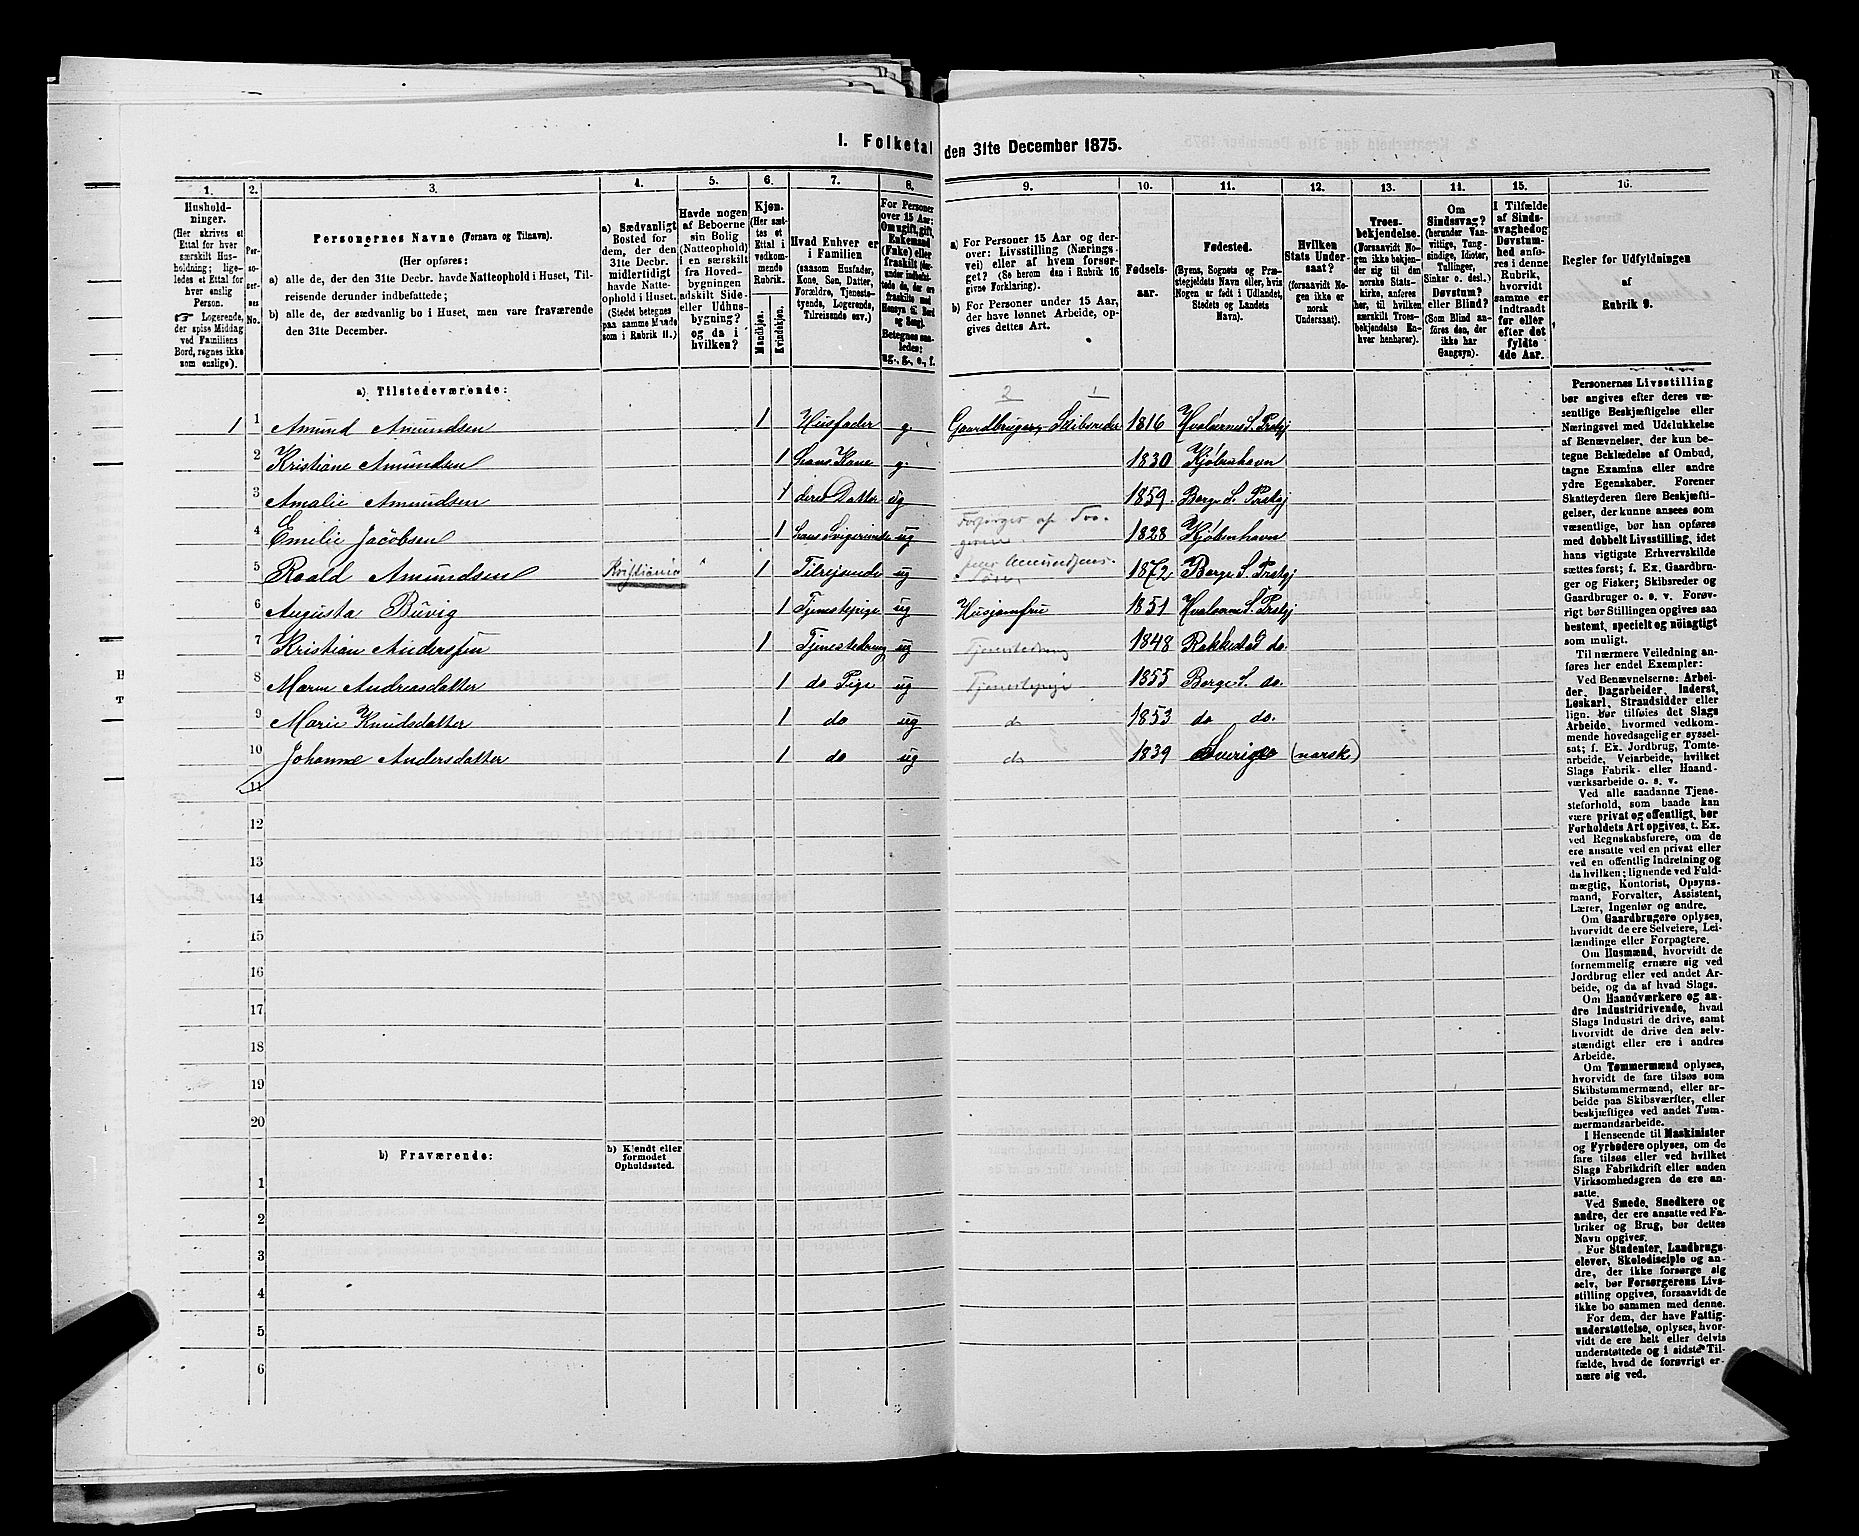 1. Folketal den 31te December 1875.
1.
2.
3.
4.
5.
6.
7.
8.
9.
10.
11.
12.
13.
14.
15.
16.
Hushold-
ninger.
(Her skrives et
Ettal for hver
særskilt Hus-
holdning; lige-
ledes et Ettal for
hver enslig
Person.
☞ Logerende,
der spise Middag
ved Familiens
Bord, regnes ikke
som enslige).
Per-
so-
ner-
nes
No.
Personernes Navne (Fornavn og Tilnavn).
(Her opføres:
a) alle de, der den 31te Decbr. havde Natteophold i Huset, Til-
reisende derunder indbefattede;
b) alle de, der sædvanlig bo i Huset, men vare fraværende
den 31te December.
a) Sædvanligt
Bosted for
dem, der den
31te Decbr.
midlertidigt
havde Natte-
ophold i Huset.
(Stedet betegnes
paa samme Maade
som i Rubrik 11.)
Havde nogen
af Beboerne
sin Bolig
(Natteophold)
i en særskilt
fra Hoved-
bygningen
adskilt Side-
eller Udhus-
bygning?
og da i
hvilken?
Kjøn.
(Her sæt-
tes et
Ettal i
vedkom-
mende
Rubrik.
Mandkjøn.
Kvindekjøn.
Hvad Enhver er
i Familien
(saasom Husfader,
Kone, Søn, Datter,
Forældre, Tjeneste-
tyende, Logerende,
Tilreisende osv.)
For Personer
over 15 Aar:
Om ugift, gift,
Enkemand
(Enke) eller
fraskilt
Betegnes saa-
ledes:
ug., g., e., f.
a) For Personer 15 Aar og der-
over: Livsstilling (Nærings-
vei) eller af hvem forsør-
get? (Se herom den i Rubrik 16
givne Forklaring).
b) For Personer under 15 Aar,
der have lønnet Arbeide, op-
gives dettes Art.
Fødsels-
aar.
Fødested.
(Byens, Sognets og Præ-
stegjeldets Navn eller, hvis
Nogen er født i Udlandet,
Stedets og Landets
Navn).
Hvilken
Stats Under-
saat?
(forsaavidt No-
gen ikke er
norsk
Undersaat).
Troes-
bekjendelse.
(Forsaavidt No-
gen ikke bekjen-
der sig til den
norske Stats-
kirke, anføres
her, til hvilken
særskilt Troes-
bekjendelse En-
hver henhører).
Om
Sindssvag?
(herunder Van-
vittige, Tung-
sindige, Idioter,
Tullinger,
Sinker o. desl.)
Døvstum?
eller Blind?
(Som Blind an-
føres den, der
ikke har
Gangsyn).
I Tilfælde
af Sinds-
svaghed og
Døvstum-
hed anfø-
res i denne
Rubrik,
hvorvidt
samme er
indtraadt
før eller
efter det
fyldte
4de Aar.
Regler for Udfyldningen
af
Rubrik 9.
a) Tilstedeværende:
2 1
1 1 Amund Amundsen 1 Husfader g. Gaardbruger, Skibsreder 1816 Hvaløernes S. Prstgj
2 Kristiane Amundsen 1 hans Kone g. 1830 Kjøbenhavn
3 Amalie Amundsen 1 deres Datter ug 1859. Borge S. Prstgj
4 Emilie Jacobsen 1 hans Svigerinde ug 1828 Kjøbenhavn
5 Roald Amundsen Kristiania " 1 Tilrejsende ug 1872 Borge S. Prstgj
6 Augusta Buvig 1 Tjenestepige ug Husjomfru 1851 Hvaløerne S. Prstgj
7 Kristian Anderssen 1 Tjenestedreng ug Tjenestedreng 1848 Rakkestad do.
8 Maren Andreasdatter 1 do Pige ug Tjenestepige 1855 Borge S. do.
9 Marie Knudsdatter 1 do ug do 1853 do do.
10 Johanne Andersdatter 1 do ug do 1839 Sverige (norsk)
11
12
13
14
15
16
17
18
19
20
b) Fraværende:
b) Kjendt eller
formodet
Opholdssted.
1
2
3
4
5
6
Personernes Livsstilling
bør angives efter deres væ-
sentlige Beskjæftigelse eller
Næringsvei med Udelukkelse
af Benævnelser, der kun be-
tegne Beklædelse af Ombud,
tagne Examina eller andre
ydre Egenskaber. Forener
Skatteyderen flere Beskjæfti-
gelser, der kunne ansees som
væsentlige, bør han opføres
med dobbelt Livsstilling, idet
hans vigtigste Erhvervskilde
sættes først; f. Ex. Gaardbru-
ger og Fisker; Skibsreder og
Gaardbruger o. s. v. Forøv-
rigt bør Stillingen opgives saa
bestemt, specielt og nöiagtigt
som muligt.
Til nærmere Veiledning an-
føres her endel Exempler:
Ved Benævnelserne: Arbei-
der, Dagarbeider, Inderst,
Løskarl, Strandsidder eller
lign. bør tilføies det Slags
Arbeide, hvormed vedkom-
mende hovedsagelig er syssel-
sat; f. Ex. Jordbrug, Tomte-
arbeide, Veiarbeide, hvilket
Slags Fabrik- eller Haand-
værksarbeide o. s. v.
Ved alle saadanne Tjene-
steforhold, som baade kan
være privat og offentligt, bør
Forholdets Art opgives, t. Ex.
ved Regnskabsførere, om de
ere ansatte ved en privat eller
ved en offentlig Indretning og
da hvilken; lignende ved Fuld-
mægtig, Kontorist, Opsyns-
mand, Forvalter, Assistent,
Lærer, Ingeniør og andre.
Om Gaardbrugere oplyses,
hvorvidt de ere Selveiere, Lei-
lændinge eller Forpagtere.
Om Husmænd, hvorvidt de
fornemmelig ernære sig ved
Jordbrug eller ved andet Ar-
beide, og da af hvad Slags.
Om Haandværkere og an-
dre Industridrivende, hvad
Slags Industri de drive, samt
hvorvidt de drive den selv-
stændigt eller ere i andres
Arbeide.
Om Tømmermænd oplyses,
hvorvidt de fare tilsøs som
Skibstømmermænd, eller ar-
beide paa Skibsværfter, eller
beskjæftiges ved andet Tøm-
mermandsarbeide.
I Henseende til Maskinister
og Fyrbødere oplyses, om de
fare tilsøs eller ved hvilket
Slags Fabrikdrift eller anden
Virksomhedsgren de ere an-
satte.
Ved Smede, Snedkere og
andre, der ere ansatte ved Fa-
briker og Brug, bør dettes
Navn opgives.
For Studenter, Landbrugs-
elever, Skoledisciple og an-
dre, der ikke forsørge sig
selv, bør Forsørgerens Livs-
stilling opgives, forsaavidt de
ikke bo sammen med denne.
For dem, der have Fattig-
understøttelse, oplyses, hvor-
vidt de ere helt eller delvis
understøttede og i sidste Til-
fælde, hvad de forøvrigt er-
nære sig ved.